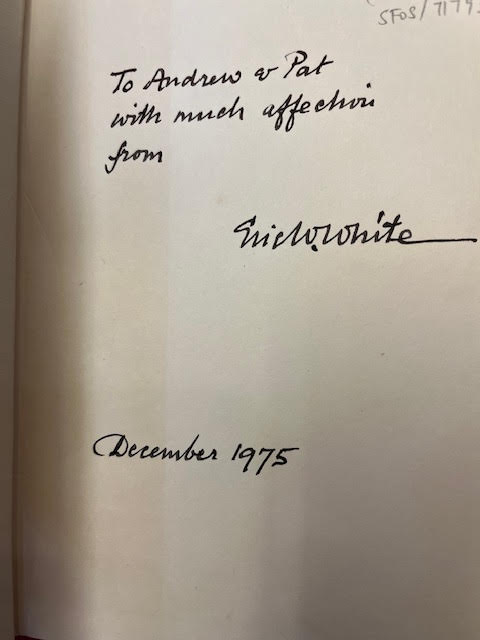 SFOS/7179
To Andrew & Pat
with much affection
from
Eric W. White
December 1975